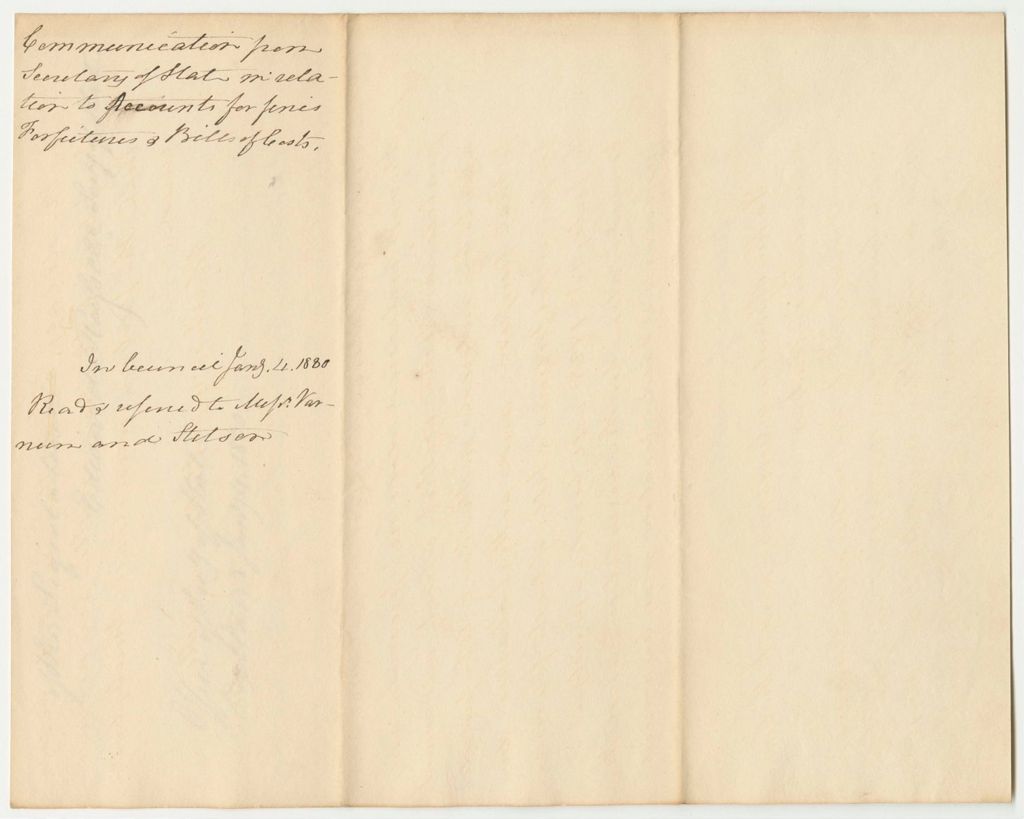 Communication from
Secretary of State in rela-
tion to Accounts for fines
Forfeitures & Bills of Costs.
In Council Jany. 4. 1830
Read & referred to Messrs. Var-
num and Stetson